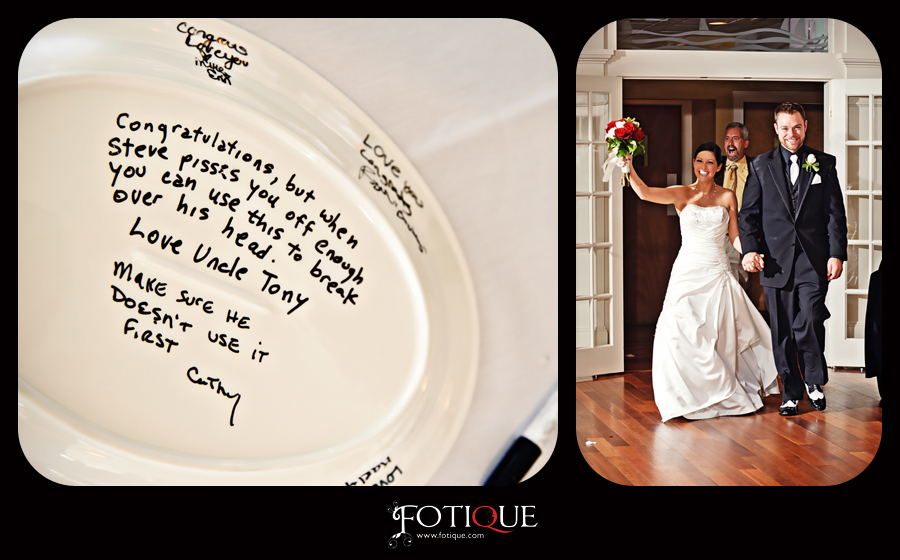 Congrats
Love you
Congratulations, but when
Steve pisses you off enough
you can use this to break
over his head.
Love Uncle Tony
MAKE SURE HE
DOESN'T USE iT
FiRST
Cathy
LOVE you
LOVE
FOTIQUE
www.fotique.com